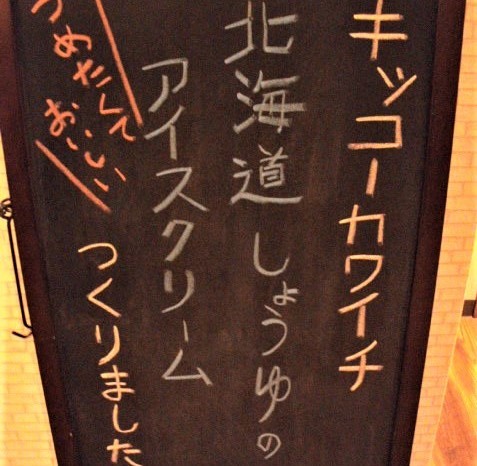 キッコーカワイチ
北海道しょうゆの
アイスクリーム
つくりました
つめたくて
おいしい